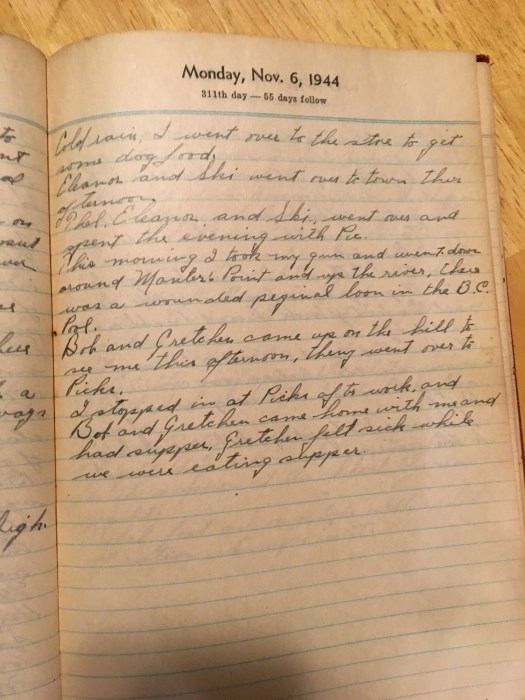 Monday, Nov. 6, 1944
311th day — 55 days follow
Cold rain, I went over to the store to get
some dog food,
Eleanor and Ski went over to town this
afternoon,
Ethel, Eleanor and Ski, went over and
spent the evening with Pic.
This morning I took my gun and went down
around Manter's Point and up the river, there
was a wounded peginal loon in the B.C.
Pool.
Bob and Gretchen came up on the hill to
see me this afternoon, they went over to
Picks.
I stopped in at Picks aftr work, and
Bob and Gretchen came home with me and
had supper, Gretchen felt sick while
we were eating supper.
to
on
a